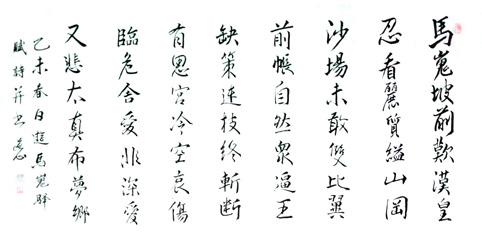 馬嵬坡前歎漢皇
忍看麗質縊山岡
沙場未敢雙比翼
前帳自然眾逼王
缺策連枝終斬断
有恩宮冷空哀傷
臨危舍愛非深愛
又悲太真布夢鄉
乙未春日遊馬嵬驛
賦詩并書